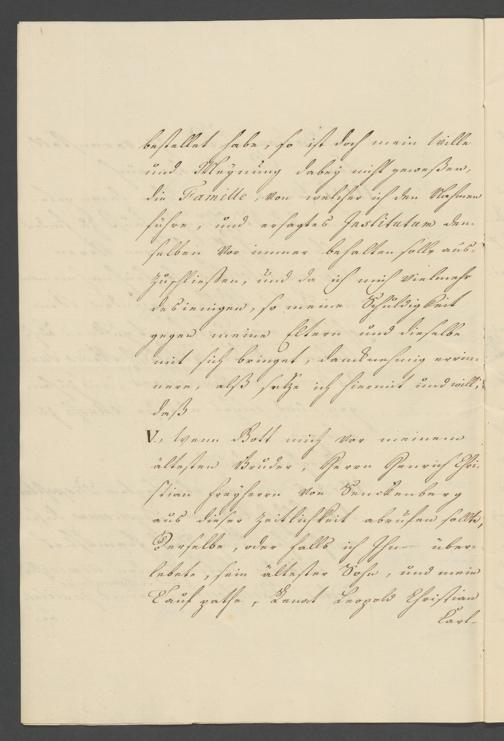 bestellet habe, so ist doch mein Wille
und Meynung dabey nicht geweßen,
die Famille, von welcher ich den Nahmen
führe, und ersagtes Institutum den-
selben vor immer behalten solle aus-
zuschliessen, und da ich mich vielmehr
desienigen, so meine Schuldigkeit
gegen meine Eltern und dieselbe
mit sich bringet, dancknehmig erin-
nere, alß setze ich hiermit und will,
daß
V., wenn Gott mich vor meinem
ältesten Bruder, Herrn Henrich Chri-
stian Freyherrn von Senckenberg
aus dieser Zeitlichkeit abrufen sollte,
Derselbe, oder falls ich Ihn über-
lebete, sein ältester Sohn, und mein
Tauf pathe, Renat Leopold Christian
Carl-